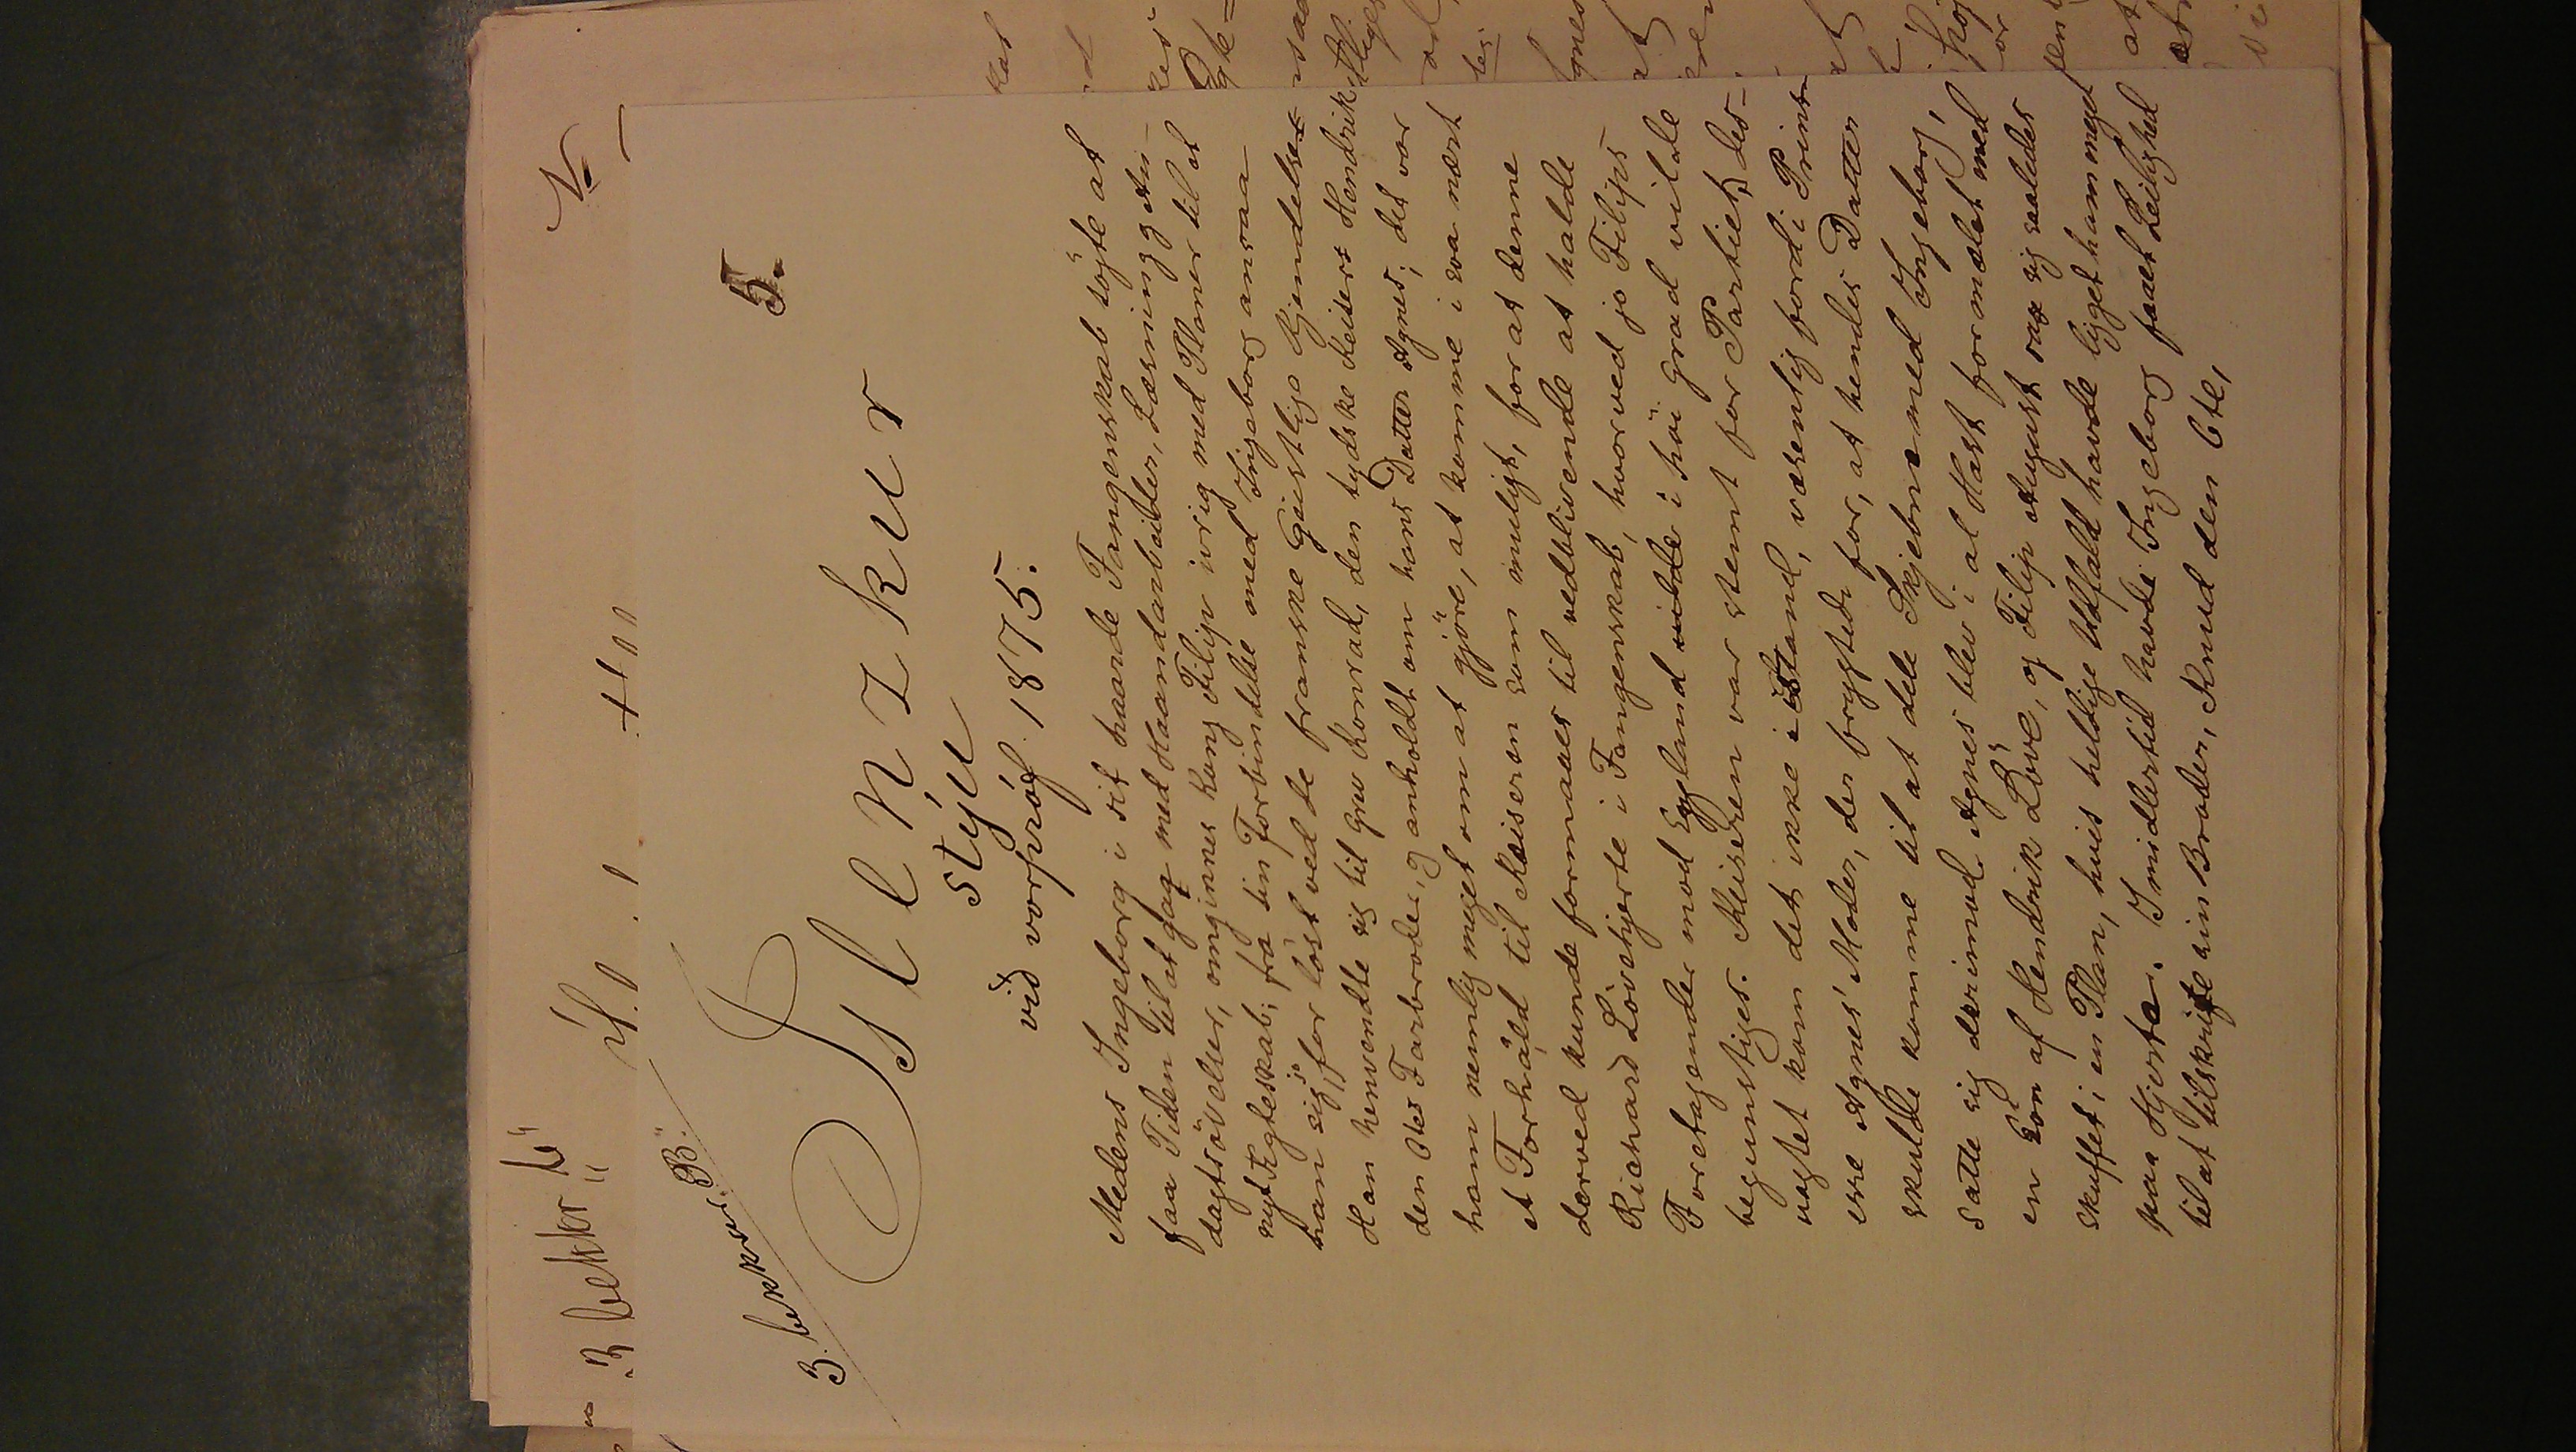 3 bekkr "b"
3. bekkur. B.
5.
Islenzkur
stýll
við vorpróf 1875.
Medens Ingeborg i sit haarde Fangenskab søgte at
faa Tiden til at gaa med Haandarbeider, Læsning og An-
dagtsövelser, omgikkes Kong Filip ivrig med Planer til et
nyt Ægteskab; fra sin Forbindelse med Ingeborg ansaa
han sig jo for löst ved de franske Geistliges Kjendelse.
Han henvendte sig til Grev Konrad, den tydske Keisers Hendrik
den 6tes Farbroder, og anholdt om hans Datter Agnes; det var
ham nemlig meget om at gjöre, at komme i saa nært
et Forhold til Keiseren som muligt, for at denne
derved kunde formaaes til vedblivende at holde
Richard Lövehjerte i Fangenskab, hvorved jo Filips
Foretagender mod England vilde i höi Grad vilde
begunstiges. Keiseren var stemt for Partiet, des-
uagtet kom det ikke i Stand, væsentlig fordi Prins-
esse Agnes' Moder, der frygtede for, at hendes Datter
skulde komme til at dele Skjebne med Ingeborg,
satte sig derimod. Agnes blev i al Hast formælet med
en Sön af Hendrik Löve, og Filip August saa sig saaledes
skuffet i en Plan, hvis heldige Udfald havde ligget ham meget
paa Hjerte. Imidlertid havde Ingeborg faaet Leilighed
til at tilskrive sin Broder, Knud den 6te,